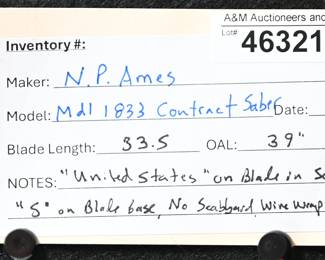 A&M Auctioneers and
Lot# 46321
Inventory #:
Maker: N.P. Ames
Model: Mdl 1833 Contract Saber Date:
Blade Length: 33.5 OAL: 39"
NOTES: "United States" on Blade in
"S" on Blade base, No Scabbard, Wire Wrap